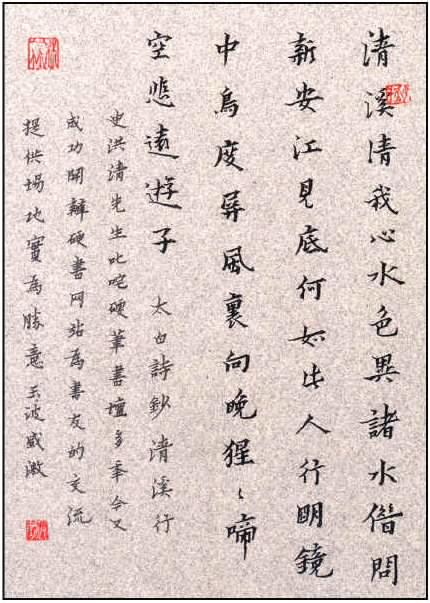 清溪清我心水色異諸水借問
新安江見底何如此人行明鏡
中鳥度屏風裏向晚猩〻啼
空悲遠遊子 太白詩鈔清溪行
史洪清先生叱咤硬筆書壇多年今又
成功開辦硬書网站為書友的交流
提供場地實為勝意玉波感激